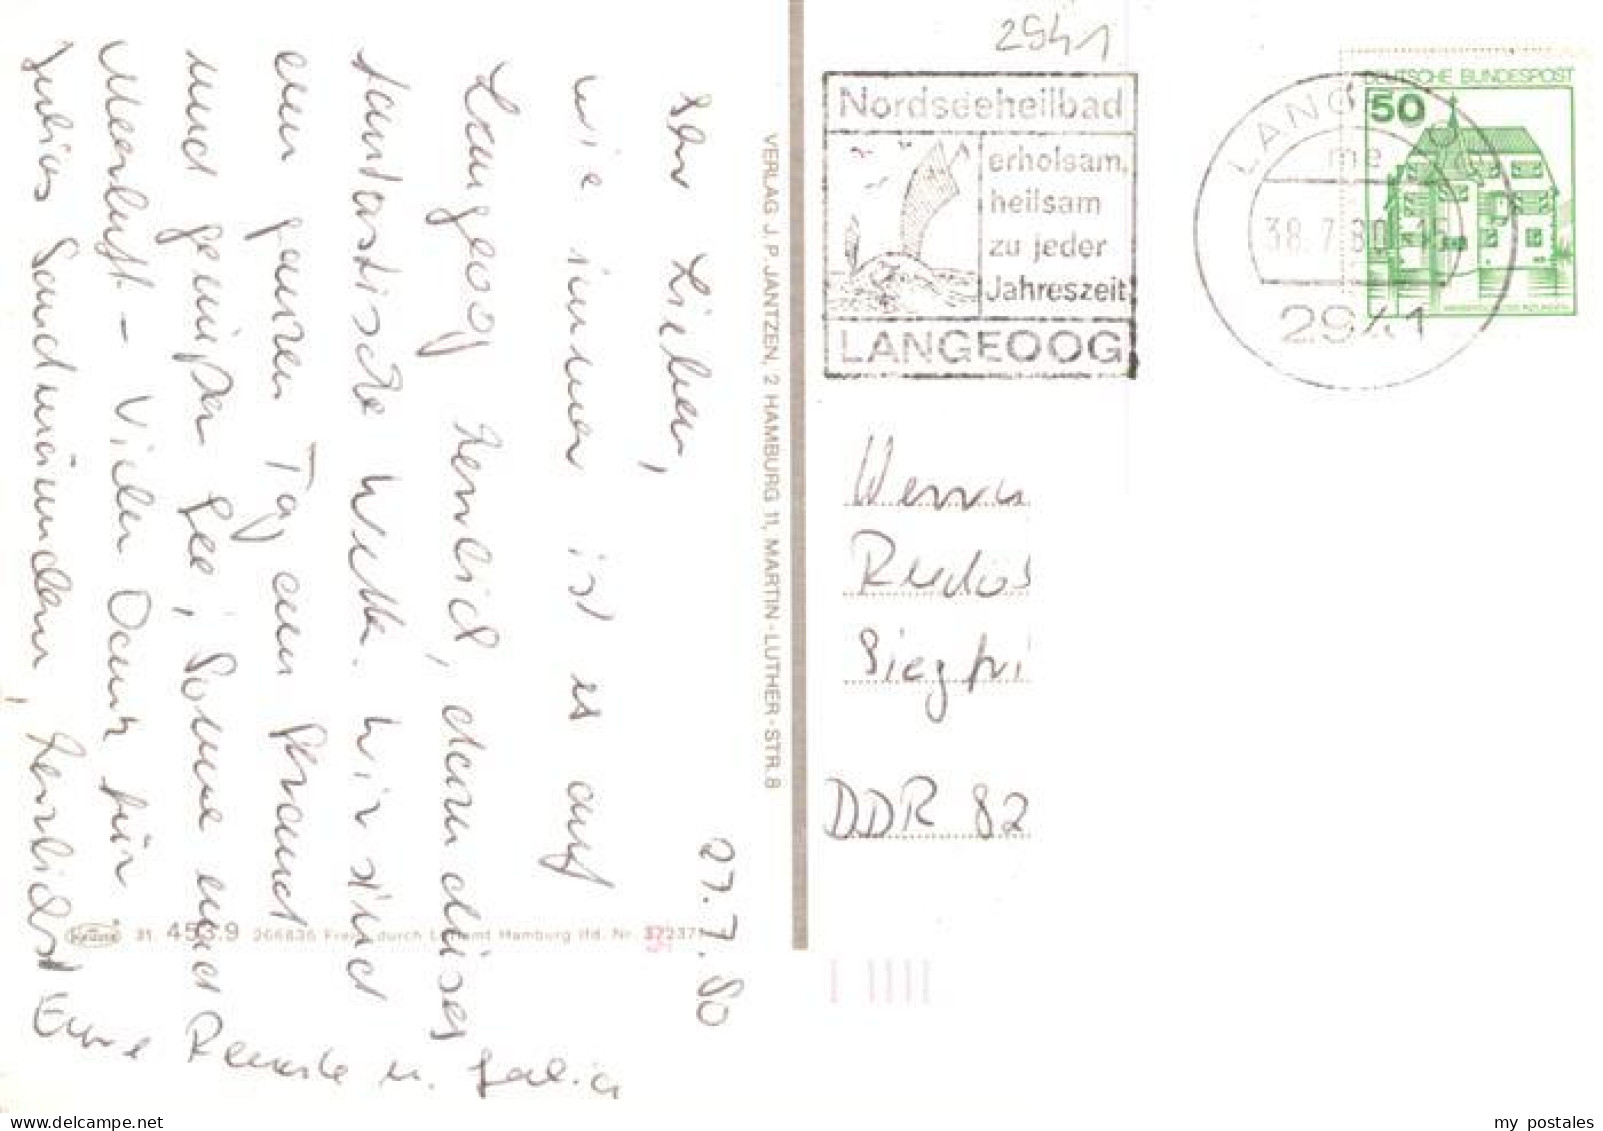 27.7.80
Ihr Lieben,
wie immer ist es auf
Langeoog herrlich, dazu dieses
fantastische Wetter. Wir sind
den ganzen Tag am Strand
und genießen See, Sonne und
Meerluft - Vielen Dank für
Julias Sandmännchen, herzlichst
Eure Renate u. Julia
VERLAG J. P. JANTZEN, 2 HAMBURG 11, MARTIN-LUTHER-STR. 8
Krüger 31. 453.9 266636 Freig. durch Lamt Hamburg lfd. Nr.
2941
Nordseeheilbad
erholsam,
heilsam
zu jeder
Jahreszeit
LANGEOOG
DEUTSCHE BUNDESPOST
50
LANG
me
38.7.80 15
2941
Werner
Rudol
Siegfri
DDR 82
my postales